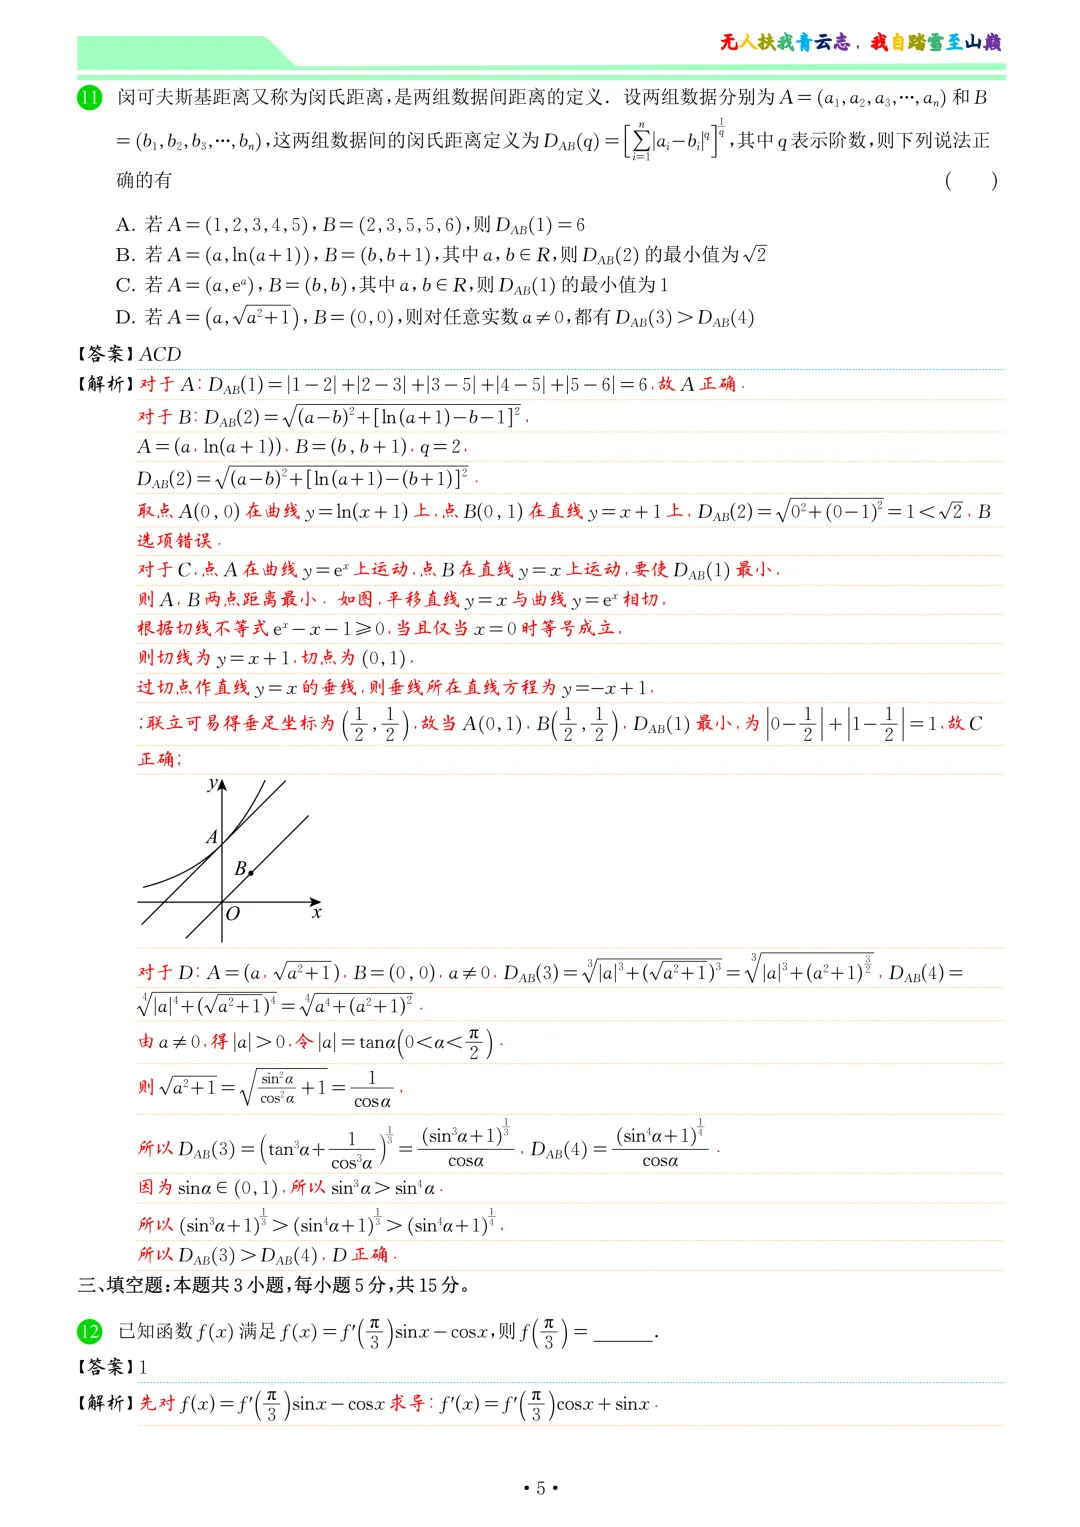 无人扶我青云志，我自踏雪至山巅
11 闵可夫斯基距离又称为闵氏距离,是两组数据间距离的定义．设两组数据分别为 A=(a₁,a₂,a₃,⋯,aₙ) 和 B
=(b₁,b₂,b₃,⋯,bₙ),这两组数据间的闵氏距离定义为 D_{AB}(q)=[∑_{i=1}^{n}|a_i-b_i|^q]^{1/q},其中 q 表示阶数,则下列说法正
确的有 (　　)
A. 若 A=(1,2,3,4,5),B=(2,3,5,5,6),则 D_{AB}(1)=6
B. 若 A=(a,ln(a+1)),B=(b,b+1),其中 a,b∈R,则 D_{AB}(2) 的最小值为 √2
C. 若 A=(a,e^a),B=(b,b),其中 a,b∈R,则 D_{AB}(1) 的最小值为 1
D. 若 A=(a,√(a²+1)),B=(0,0),则对任意实数 a≠0,都有 D_{AB}(3)>D_{AB}(4)
【答案】ACD
【解析】对于 A: D_{AB}(1)=|1-2|+|2-3|+|3-5|+|4-5|+|5-6|=6,故 A 正确．
对于 B: D_{AB}(2)=√((a-b)²+[ln(a+1)-b-1]²),
A=(a, ln(a+1)), B=(b, b+1), q=2,
D_{AB}(2)=√((a-b)²+[ln(a+1)-(b+1)]²)．
取点 A(0,0) 在曲线 y=ln(x+1) 上,点 B(0,1) 在直线 y=x+1 上, D_{AB}(2)=√(0²+(0-1)²)=1<√2, B
选项错误．
对于 C,点 A 在曲线 y=e^x 上运动,点 B 在直线 y=x 上运动,要使 D_{AB}(1) 最小,
则 A, B 两点距离最小．如图,平移直线 y=x 与曲线 y=e^x 相切,
根据切线不等式 e^x-x-1⩾0,当且仅当 x=0 时等号成立,
则切线为 y=x+1,切点为 (0,1),
过切点作直线 y=x 的垂线,则垂线所在直线方程为 y=-x+1,
;联立可易得垂足坐标为 (1/2, 1/2),故当 A(0,1), B(1/2, 1/2), D_{AB}(1) 最小,为 |0-1/2|+|1-1/2|=1,故 C
正确;
y
A
B
O x
对于 D: A=(a, √(a²+1)), B=(0,0), a≠0, D_{AB}(3)=∛(|a|³+(√(a²+1))³)=∛(|a|³+(a²+1)^{3/2}), D_{AB}(4)=
∜(|a|⁴+(√(a²+1))⁴)=∜(a⁴+(a²+1)²)．
由 a≠0,得 |a|>0,令 |a|=tanα(0<α<π/2)．
则 √(a²+1)=√(sin²α/cos²α+1)=1/cosα,
所以 D_{AB}(3)=(tan³α+1/cos³α)^{1/3}=(sin³α+1)^{1/3}/cosα, D_{AB}(4)=(sin⁴α+1)^{1/4}/cosα．
因为 sinα∈(0,1),所以 sin³α>sin⁴α．
所以 (sin³α+1)^{1/3}>(sin⁴α+1)^{1/3}>(sin⁴α+1)^{1/4},
所以 D_{AB}(3)>D_{AB}(4), D 正确．
三、填空题:本题共 3 小题,每小题 5 分,共 15 分。
12 已知函数 f(x) 满足 f(x)=f′(π/3)sinx-cosx,则 f(π/3)=______．
【答案】1
【解析】先对 f(x)=f′(π/3)sinx-cosx 求导: f′(x)=f′(π/3)cosx+sinx．
· 5 ·